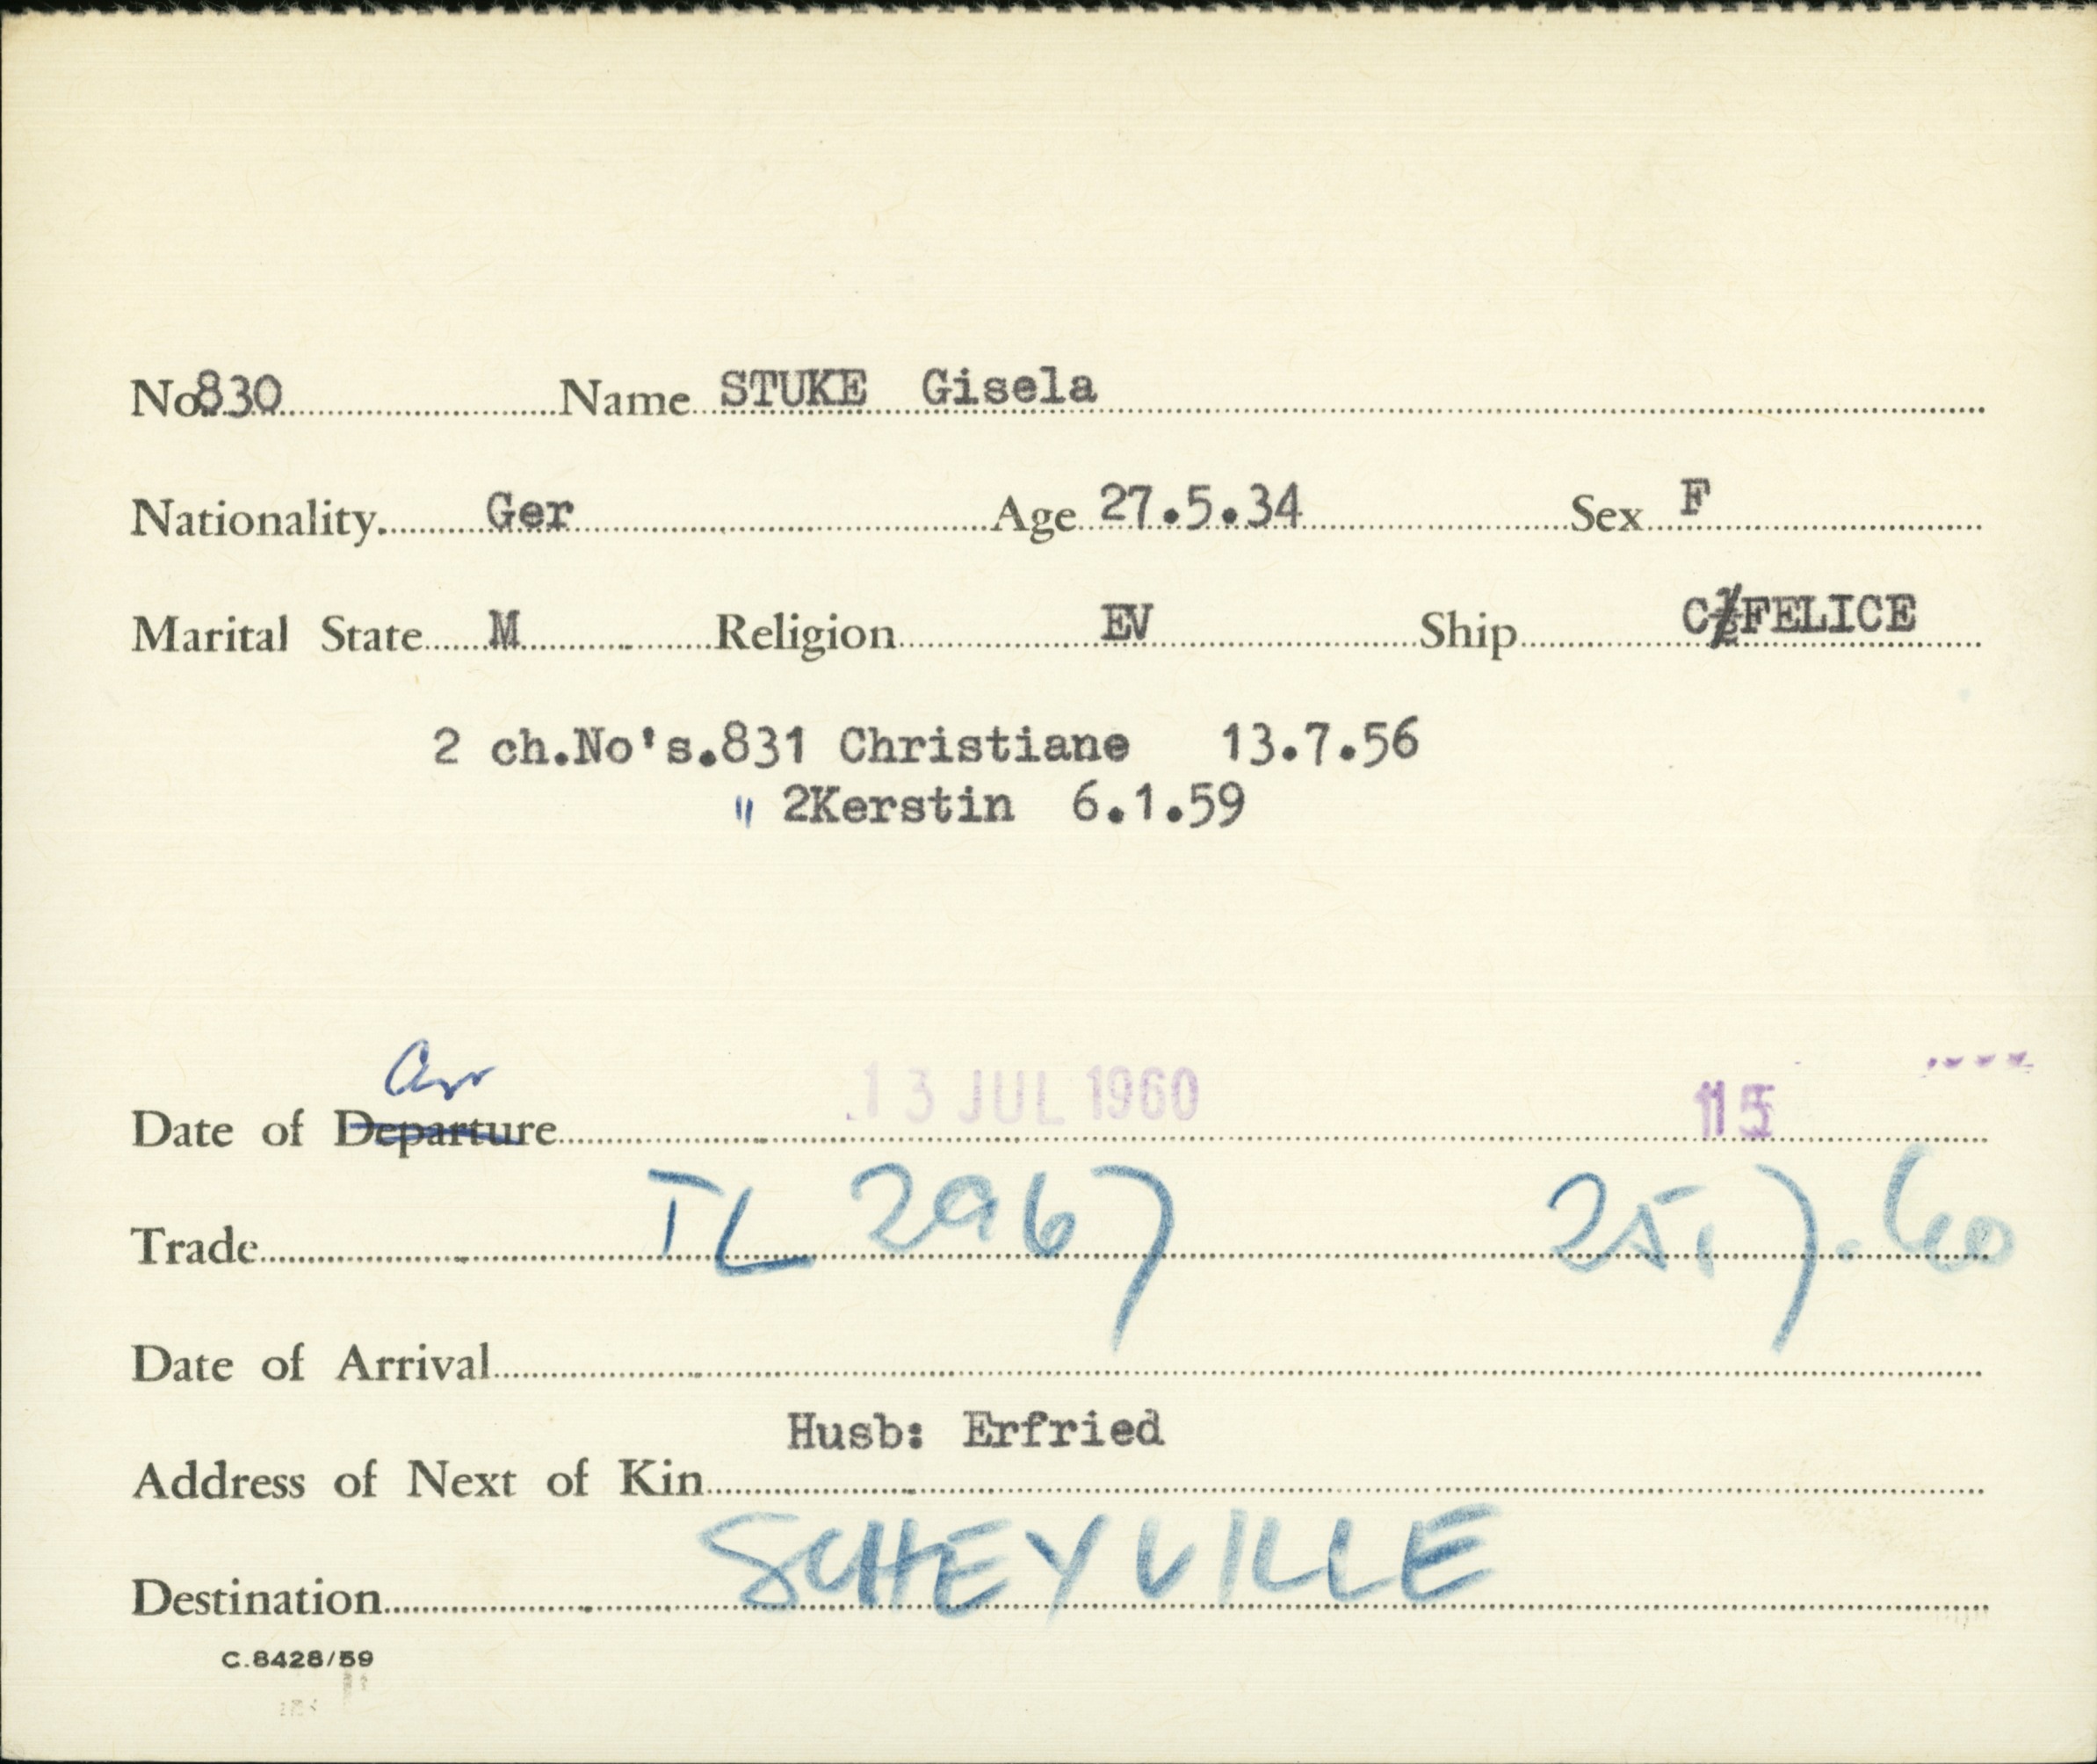 No. 830 Name STUKE Gisela
Nationality Ger Age 27.5.34 Sex F
Marital State M Religion EV Ship C/FELICE
2 ch.No's.831 Christiane 13.7.56
" 2Kerstin 6.1.59
Arr
Date of Departure 13 JUL 1960 115
Trade TL 2967 25.7.60
Date of Arrival
Husb: Erfried
Address of Next of Kin
Destination SCHEYVILLE
C.8428/59